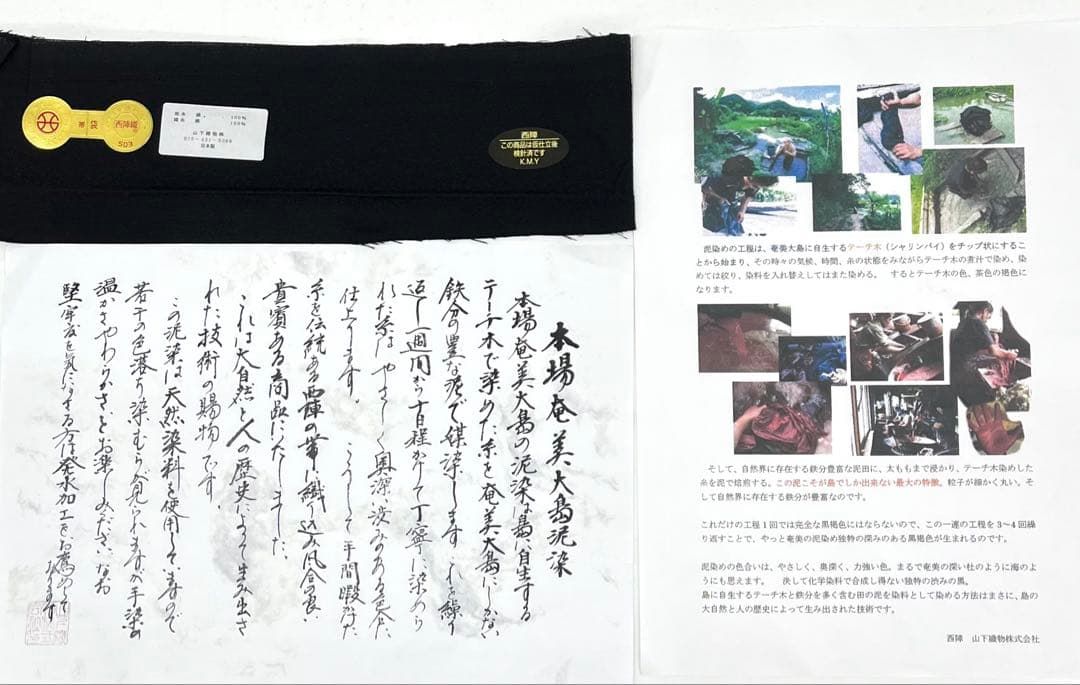 帯 袋
西陣織
503
100%
100%
山下織物㈱
日本製
西陣
この商品は仮仕立後
検針済です
K.M.Y
本場奄美大島泥染
本場奄美大島の泥染は島に自生する
テーチ木で染めた糸を奄美大島にしかない
鉄分の豊な泥で媒染します これを繰り
返し一週間から十日程かけて丁寧に染めら
れた糸は やさしく奥深い渋みのある色に
仕上ります。こうして手間暇かけた
糸を伝統ある西陣の帯に織り込み風合の良い
貴賓ある商品にいたしました。
これは大自然と人の歴史によって生み出さ
れた技術の賜物です。
この泥染は天然染料を使用していますので
若干の色落ち染むらが見られますが手染の
温かさやわらかさをお楽しみください。なお
堅牢度を気にする方は発水加工をお薦めして
おります
泥染めの工程は、奄美大島に自生するテーチ木（シャリンバイ）をチップ状にするこ
とから始まり、その時々の気候、時間、糸の状態をみながらテーチ木の煮汁で染め、染
めては絞り、染料を入れ替えしてはまた染める。 するとテーチ木の色、茶色の褐色に
なります。
そして、自然界に存在する鉄分豊富な泥田に、太ももまで浸かり、テーチ木染めした
糸を泥で焙煎する。この泥こそが島でしか出来ない最大の特徴。粒子が細かく丸い。そ
して自然界に存在する鉄分が豊富なのです。
これだけの工程1回では完全な黒褐色にはならないので、この一連の工程を3～4回繰
り返すことで、やっと奄美の泥染め独特の深みのある黒褐色が生まれるのです。
泥染めの色合いは、やさしく、奥深く、力強い色。まるで奄美の深い杜のように海のよ
うにも思えます。 決して化学染料で合成し得ない独特の渋みの黒。
島に自生するテーチ木と鉄分を多く含む田の泥を染料として染める方法はまさに、島の
大自然と人の歴史によって生み出された技術です。
西陣 山下織物株式会社